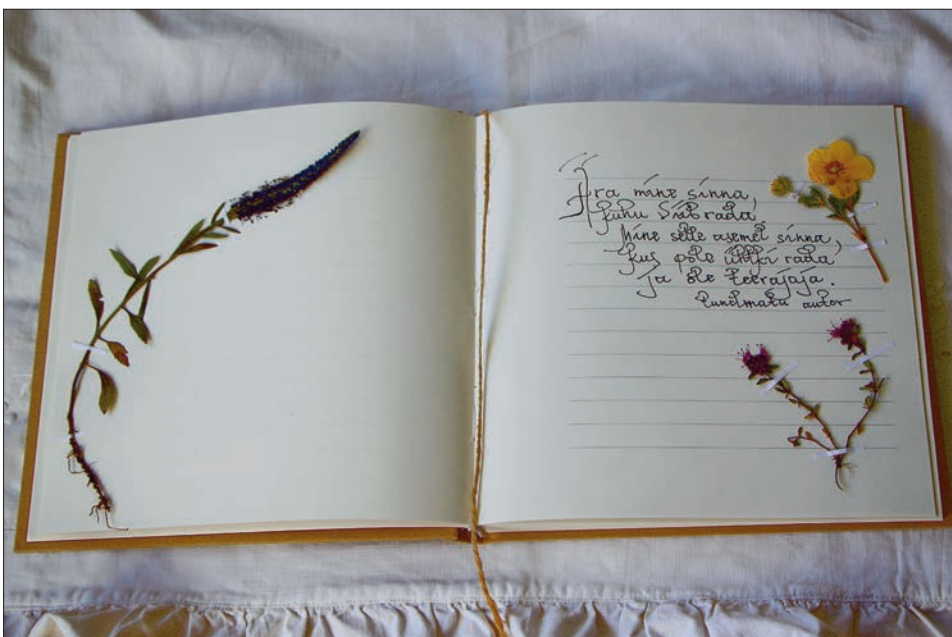 Ära mine sinna,
kuhu viib rada.
Mine selle asemel sinna,
kus pole ühtki rada
ja ole teerajaja.
tundmatu autor